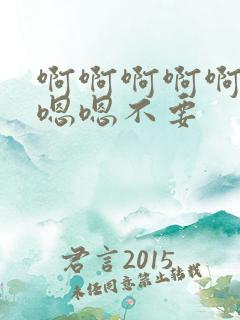 啊啊啊啊啊
嗯嗯不要
君言2015
未经同意禁止转载